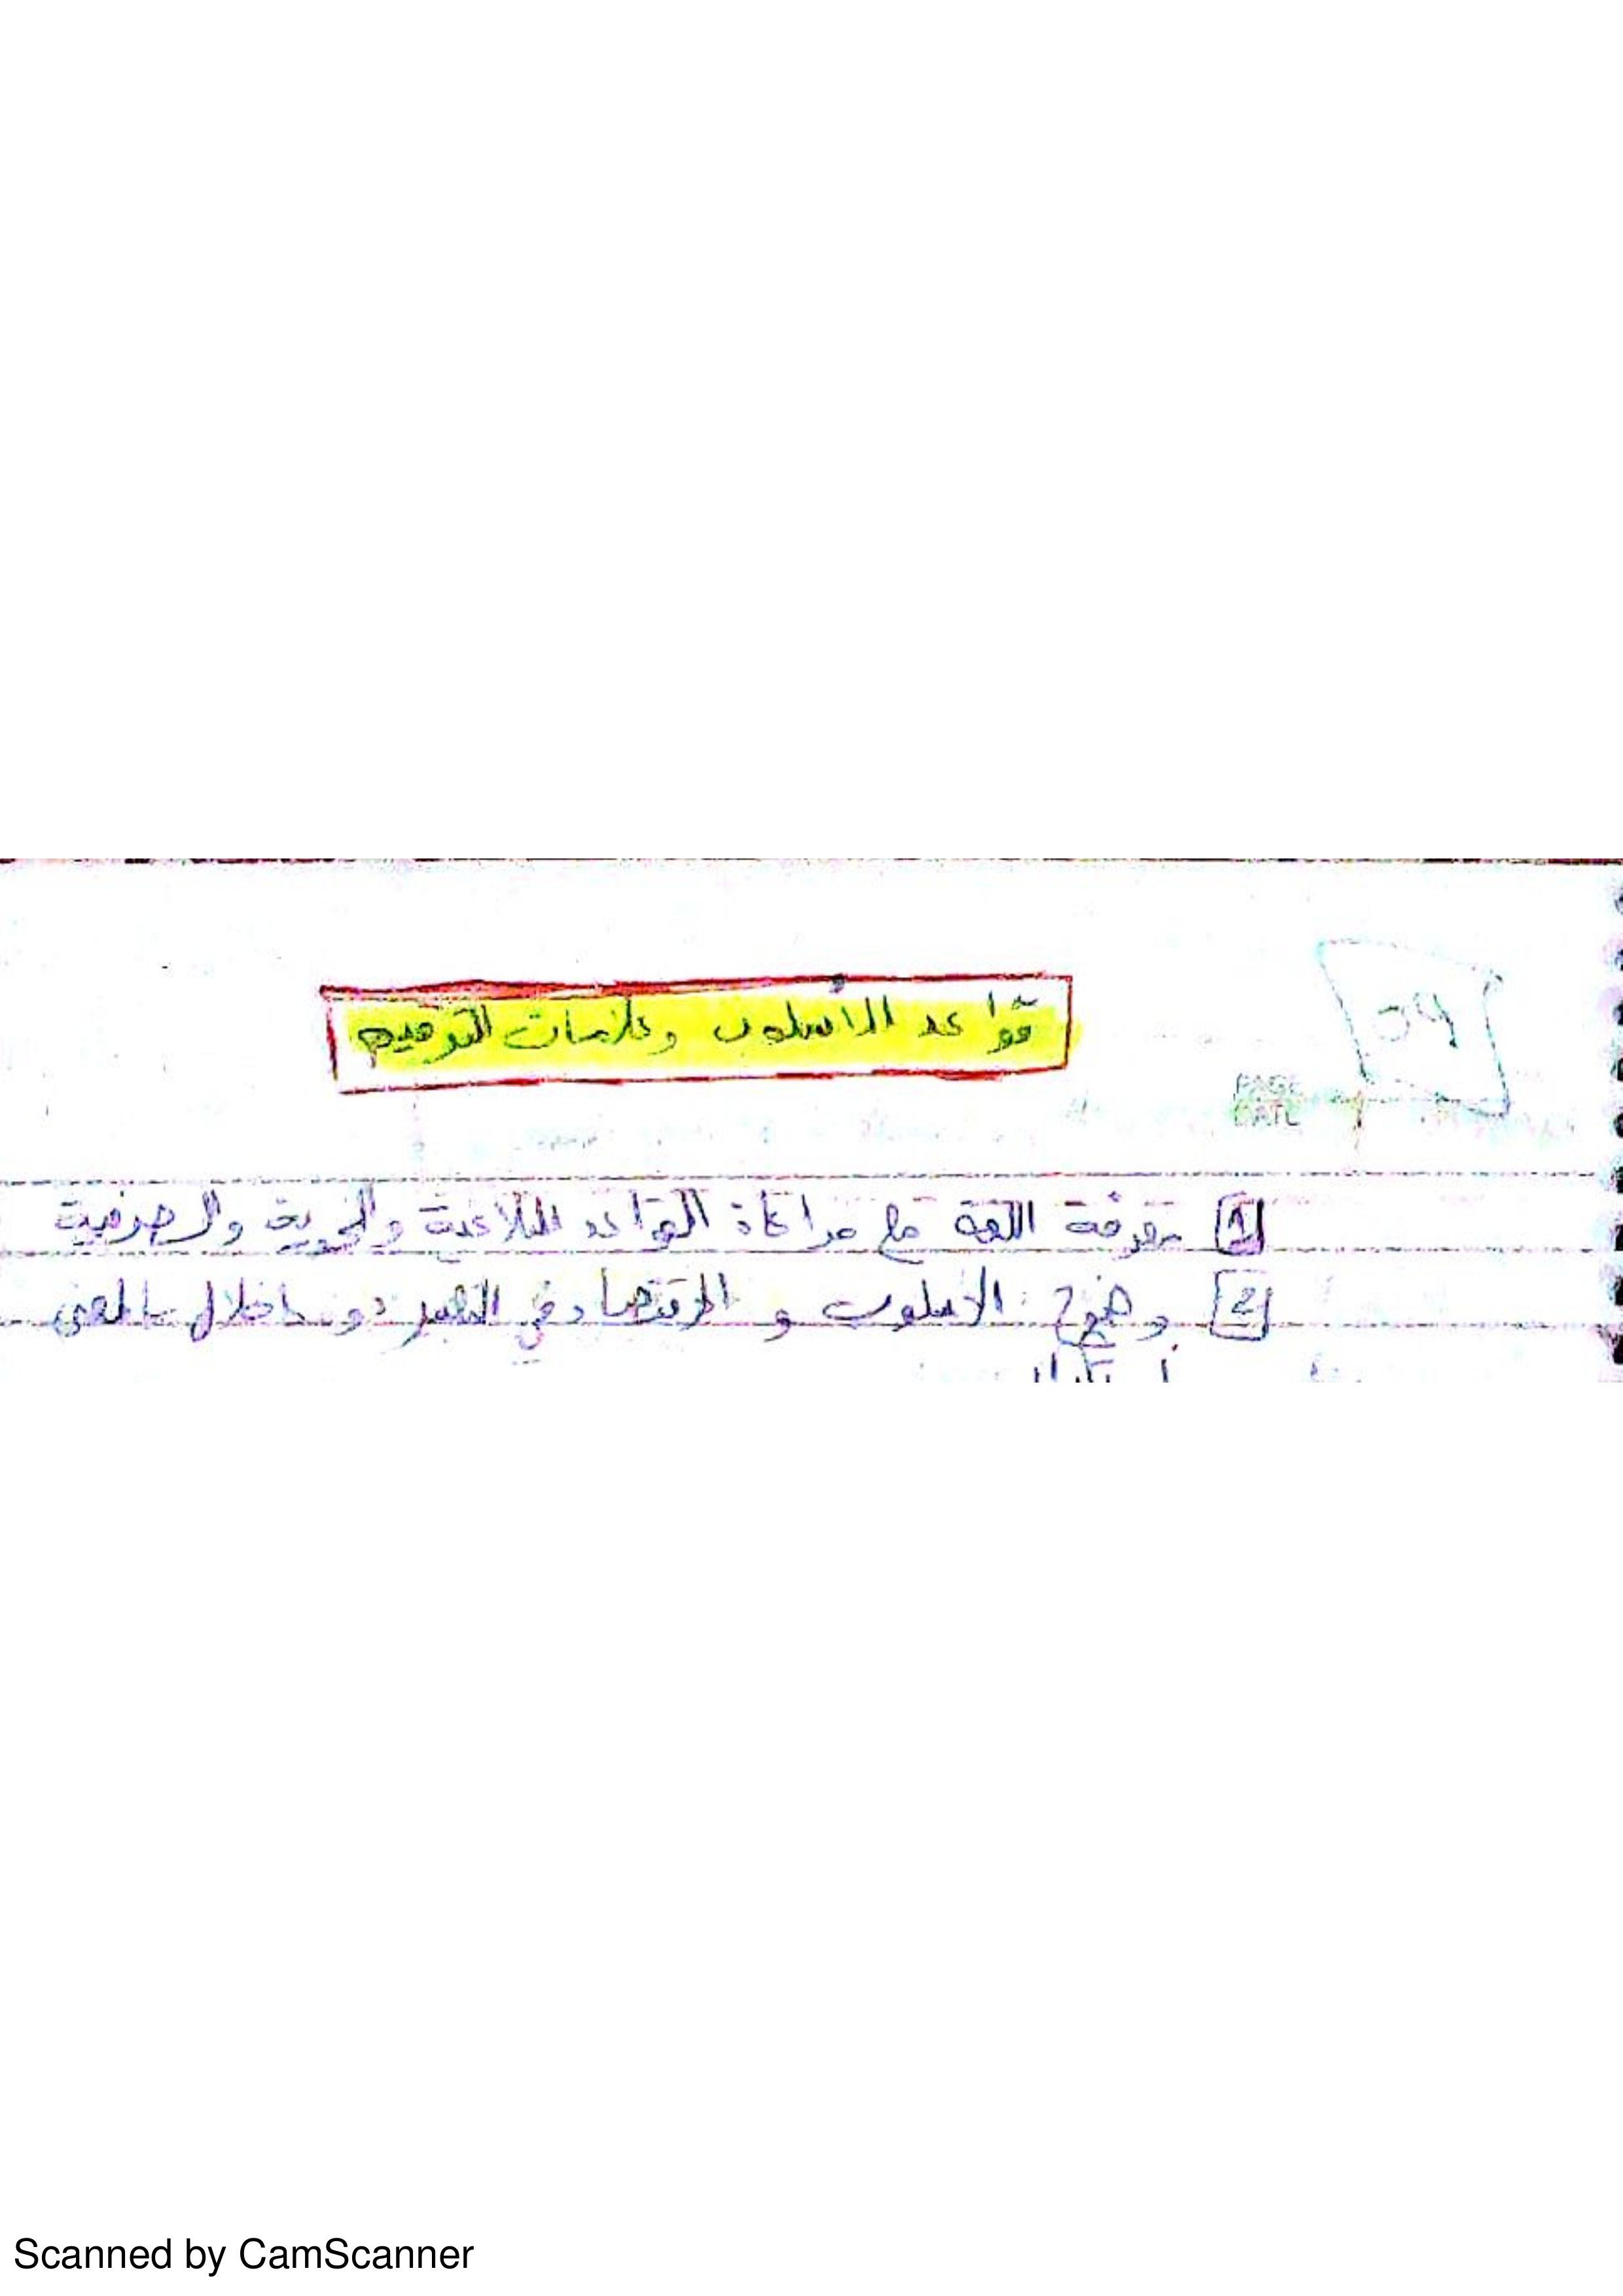 قواعد الأسلوب وعلامات الترقيم
PAGE
DATE
1 معرفة اللغة مع مراعاة القواعد البلاغية والنحوية والصرفية
2 وضوح الاسلوب و الاقتصاد في التعبير دون اخلال بالمعنى
Scanned by CamScanner